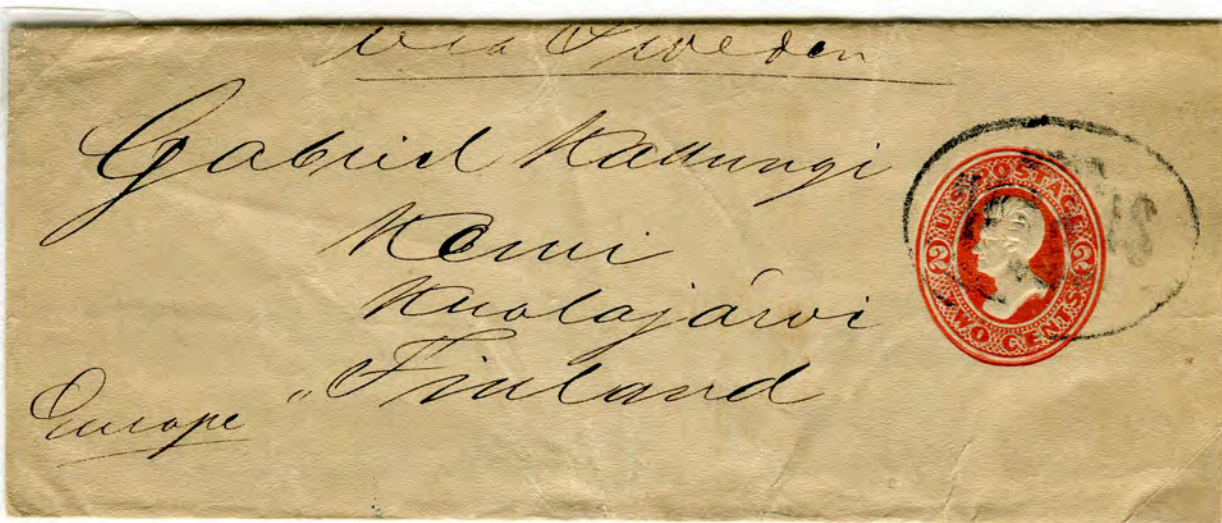 via Sweden
Gabriel Kallungi
Kemi
Kuolajärvi
"Finland
Europe
U.S. POSTAGE
2 2
TWO CENTS